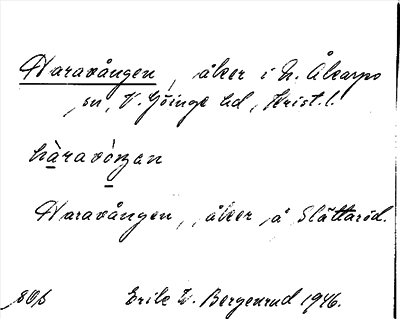 Haravången, åker i N. Åkarps
sn, V. Göinge hd, Krist. l.
hàravóŋan
Haravången, åker å Slättaröd.
Erik W. Bergenrud 1946.